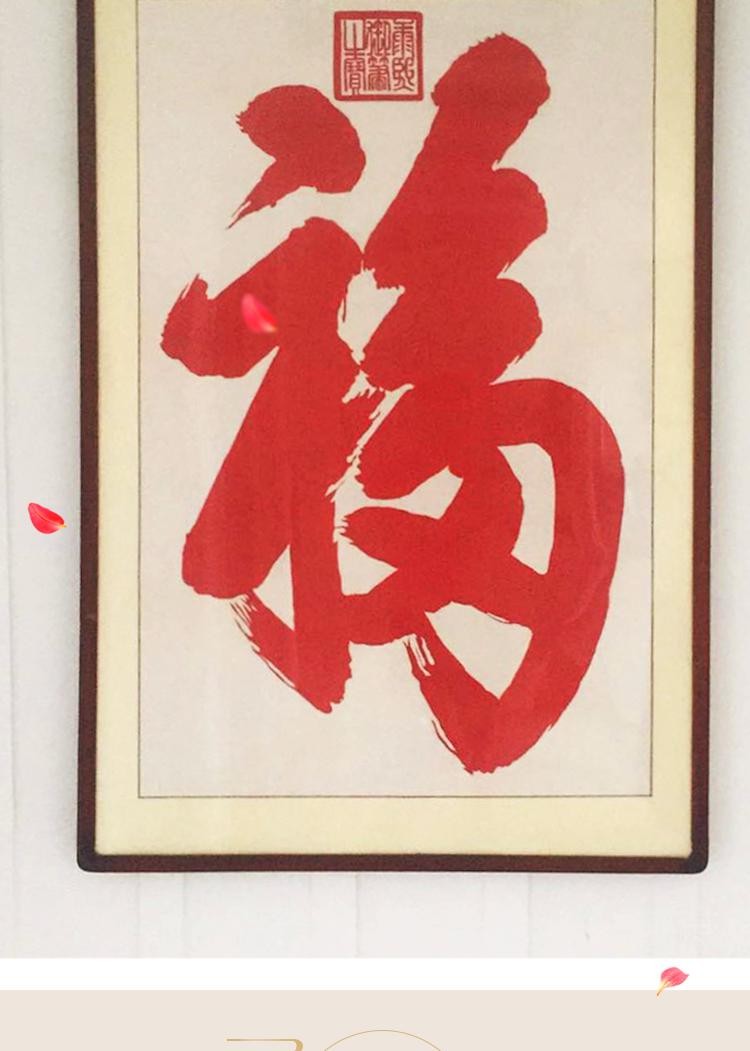 康熙御筆之寶
福